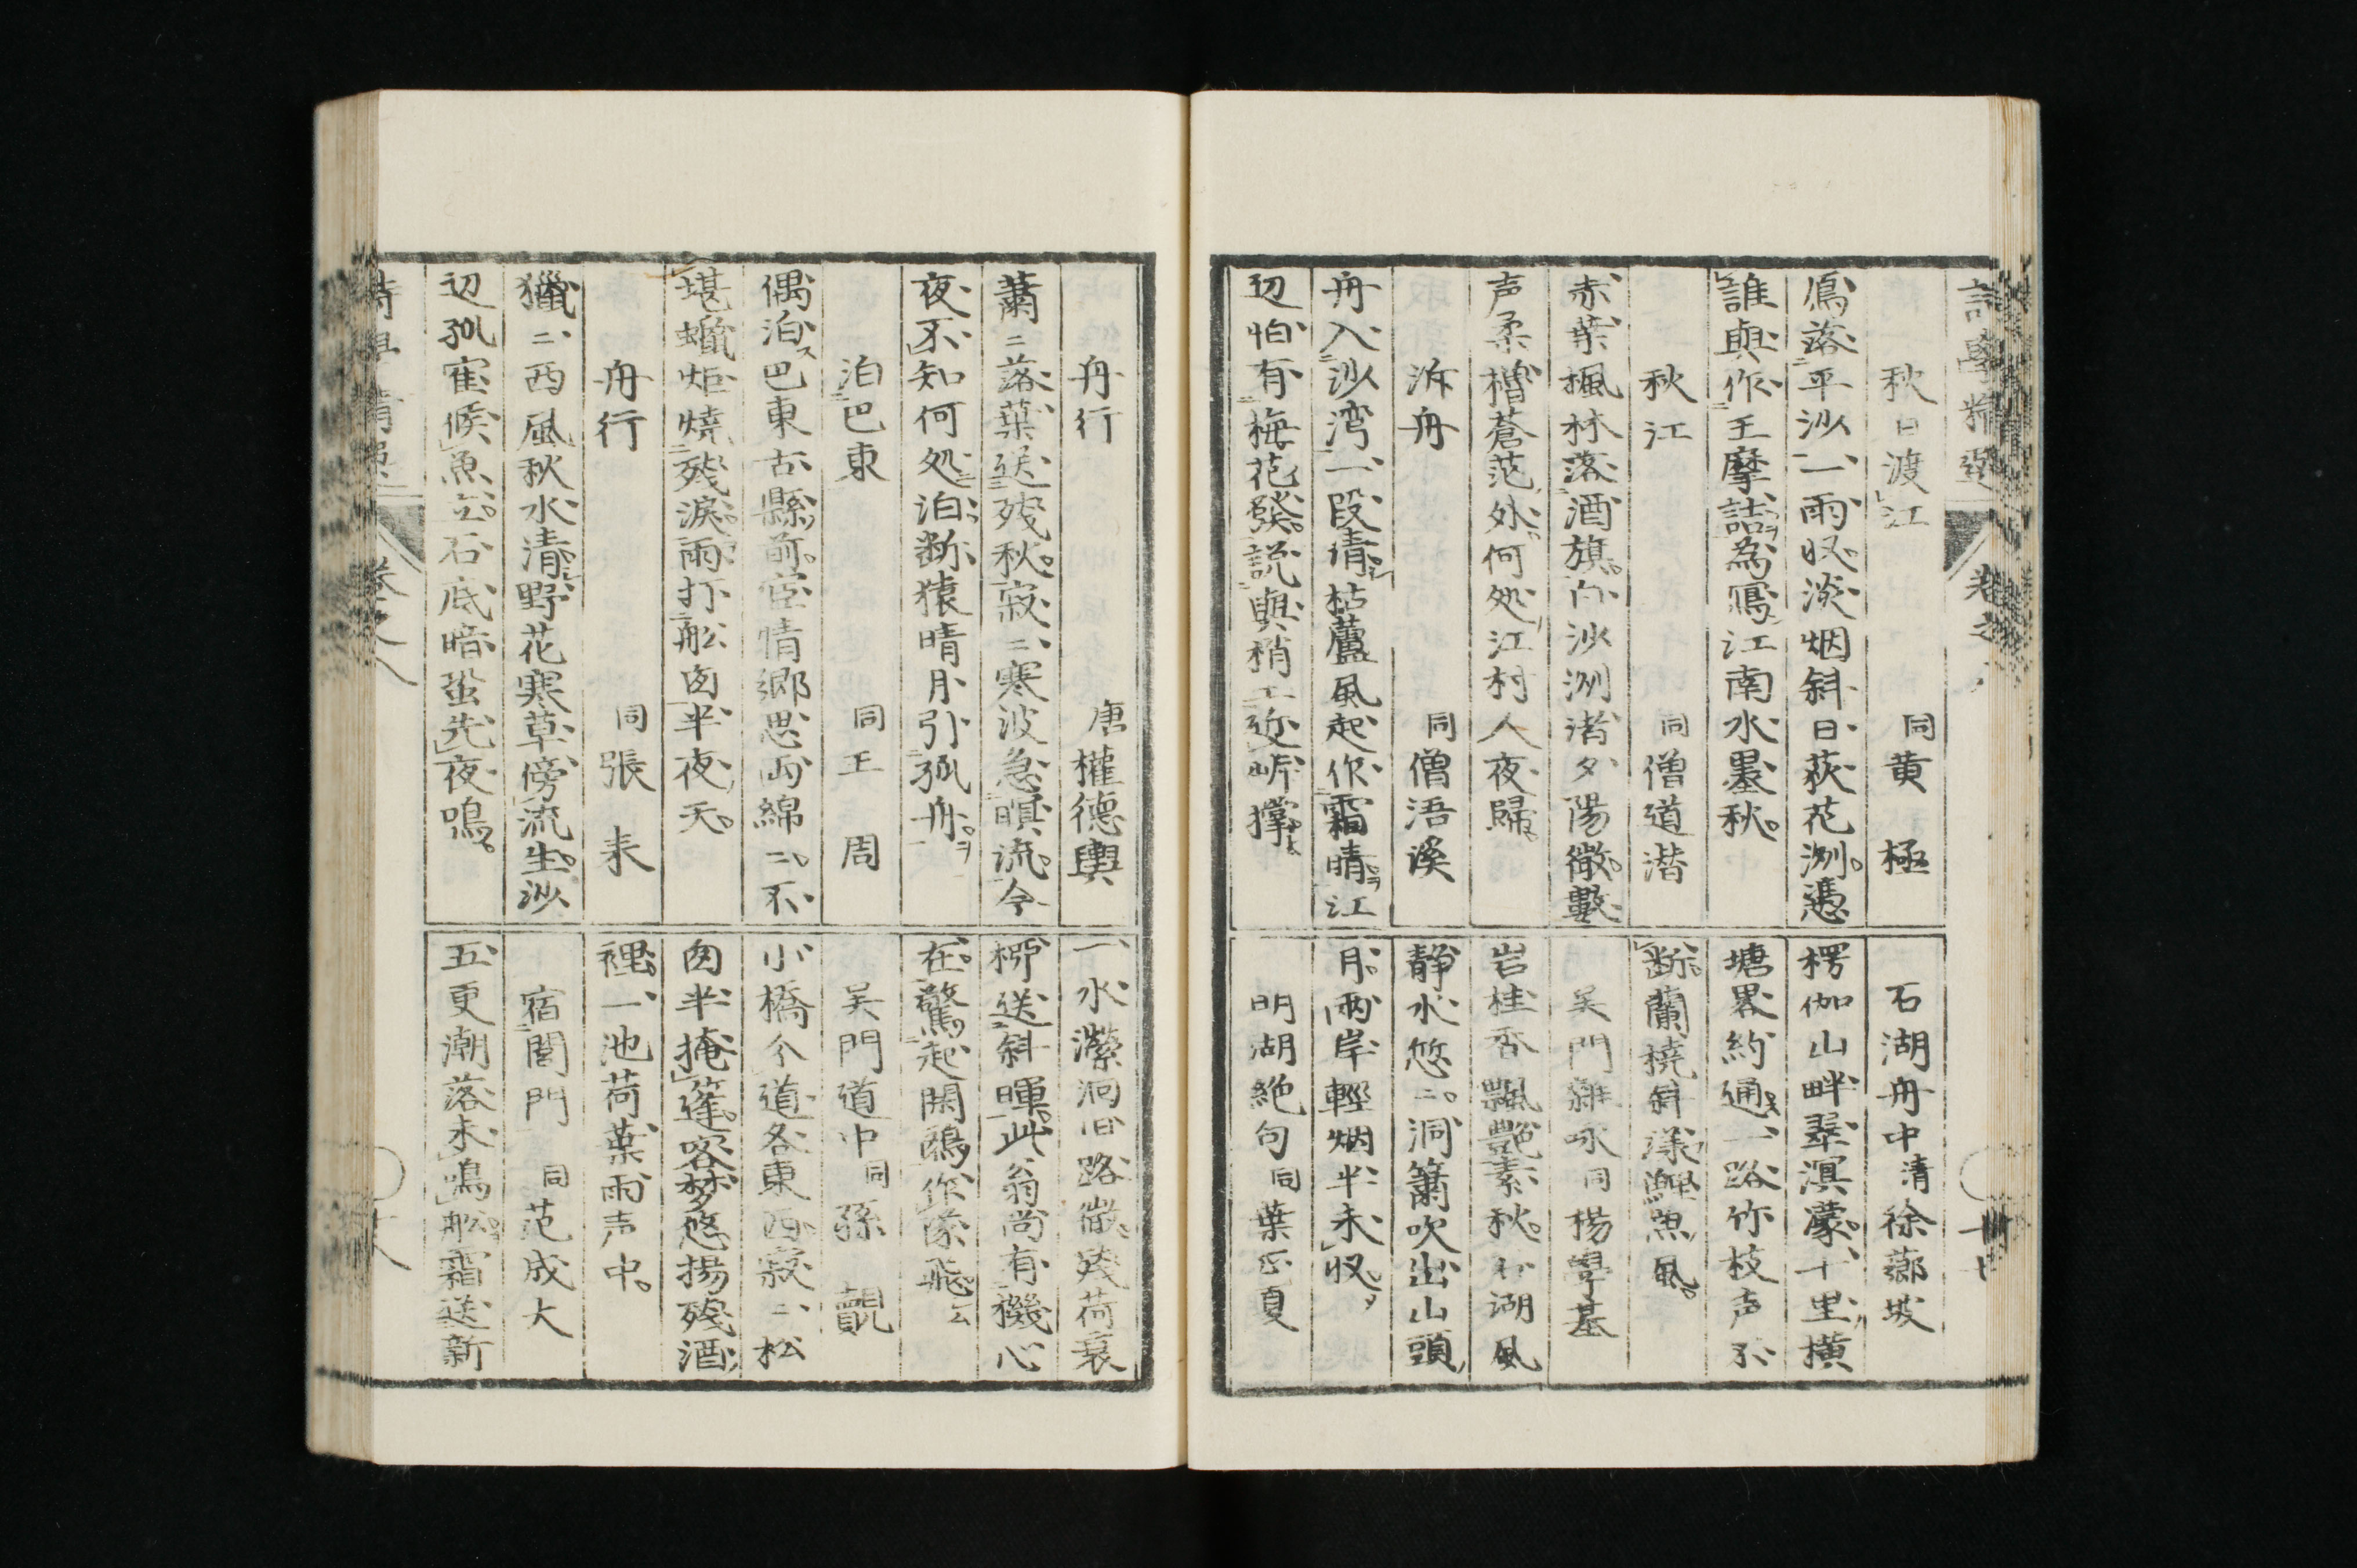 秋日渡江 同 黄極
鳫落平沙一雨収淡烟斜日荻花洲憑
誰與作王摩詰為寫江南水墨秋
秋江 同 僧道潜
赤葉楓林落酒旗白沙洲渚夕陽微數
声柔櫓蒼茫外何処江村人夜歸
泝舟 同 僧浯溪
舟入沙湾一段清枯蘆風起作霜晴江
辺怕有梅花發説與稍工近岍撑
石湖舟中 清 徐薌坡
楞伽山畔翠溟蒙十里横
塘畧約通一路竹枝声不
断蘭橈斜漾鯉魚風
吴門雑咏 同 楊學基
岩桂香飄艶素秋 湖風
静水悠〻洞簫吹出山頭
月兩岸輕烟半未収
明湖絶句 同 葉正夏
舟行 唐 權德輿
蕭〻落葉送残秋寂〻寒波急暝流今
夜不知何処泊断猿晴月引孤舟
泊巴東 同 王周
偶泊巴東古縣前宦情郷思両綿〻不
堪蠟炬燒殘淚雨打舩囱半夜天
舟行 同 張耒
獵〻西風秋水清野花寒草傍流生沙
辺孤寉候魚立石底暗蛩先夜鳴
一水瀠洄旧路微残荷衰
栁送斜暉此翁尚有機心
在驚起閑鷗作隊飛
吴門道中 同 孫覿
小橋今道各東西寂〻松
囱半掩篷客梦悠揚殘酒
裡一池荷葉雨声中
宿閶門 同 范成大
五更潮落未鳴舩霜送新